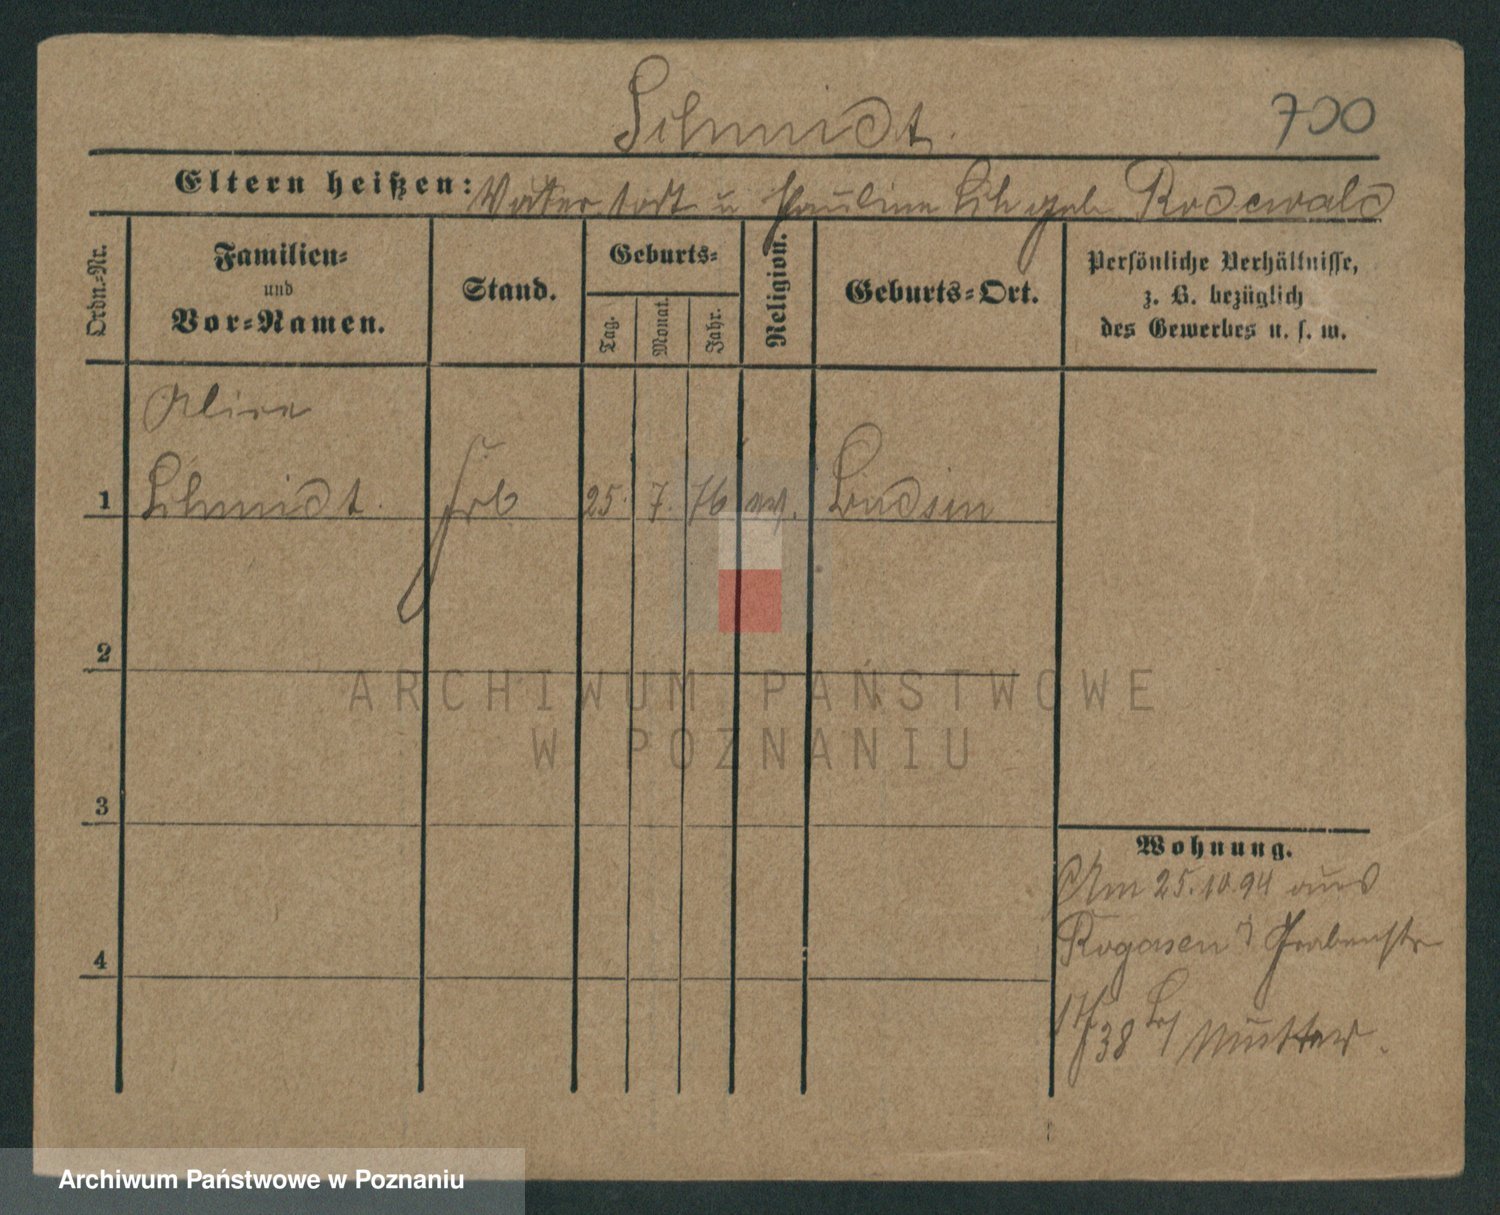 Schmidt.
700
Eltern heißen: Vater todt u Pauline geb Rodewald
Ordn.-Nr.
Familien- und Vor-Namen.
Stand.
Geburts-
Tag.
Monat.
Jahr.
Religion.
Geburts-Ort.
Persönliche Verhältnisse,
z. B. bezüglich
des Gewerbes u. s. w.
Alice
1 Schmidt. 25. 7. 76 ev.
2
ARCHIWUM PAŃSTWOWE
W POZNANIU
3
Wohnung.
Am 25.10.94 aus
Rogasen Grabenstr
4
38 Mutter.
Archiwum Państwowe w Poznaniu